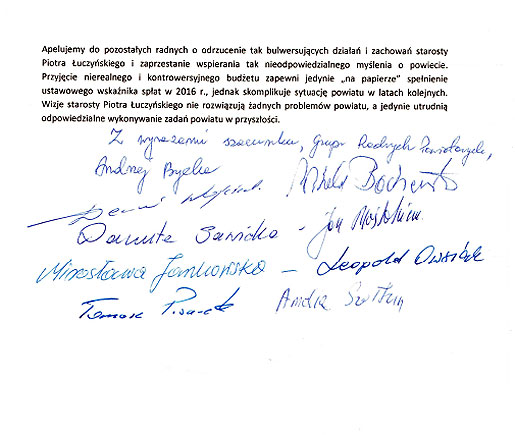 Apelujemy do pozostałych radnych o odrzucenie tak bulwersujących działań i zachowań starosty
Piotra Łuczyńskiego i zaprzestanie wspierania tak nieodpowiedzialnego myślenia o powiecie.
Przyjęcie nierealnego i kontrowersyjnego budżetu zapewni jedynie „na papierze” spełnienie
ustawowego wskaźnika spłat w 2016 r., jednak skomplikuje sytuację powiatu w latach kolejnych.
Wizje starosty Piotra Łuczyńskiego nie rozwiązują żadnych problemów powiatu, a jedynie utrudnią
odpowiedzialne wykonywanie zadań powiatu w przyszłości.
Z wyrazami szacunku, Grupa Radnych Powiatowych,
Andrzej
Danuta Sawicka - Jan
Mirosława Jankowska - Leopold
Tomasz